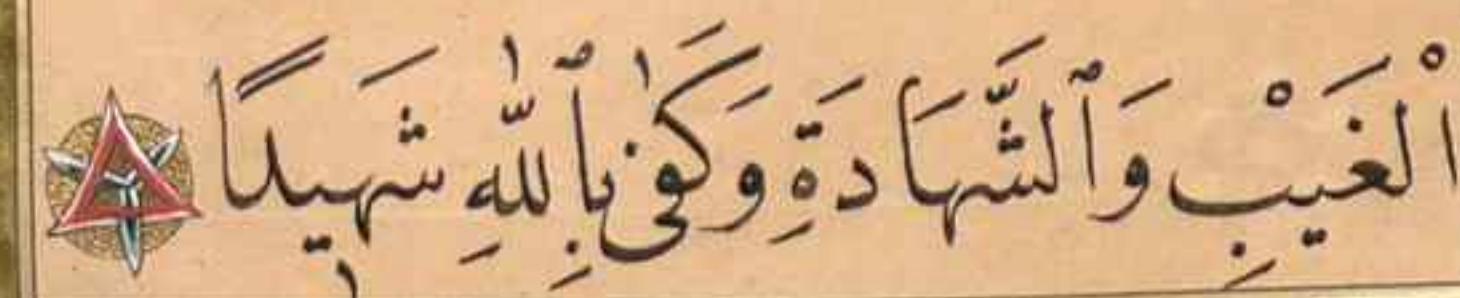 الْغَيْبِ وَٱلشَّهَادَةِ وَكَفَىٰ بِٱللَّٰهِ شَهِيدًا